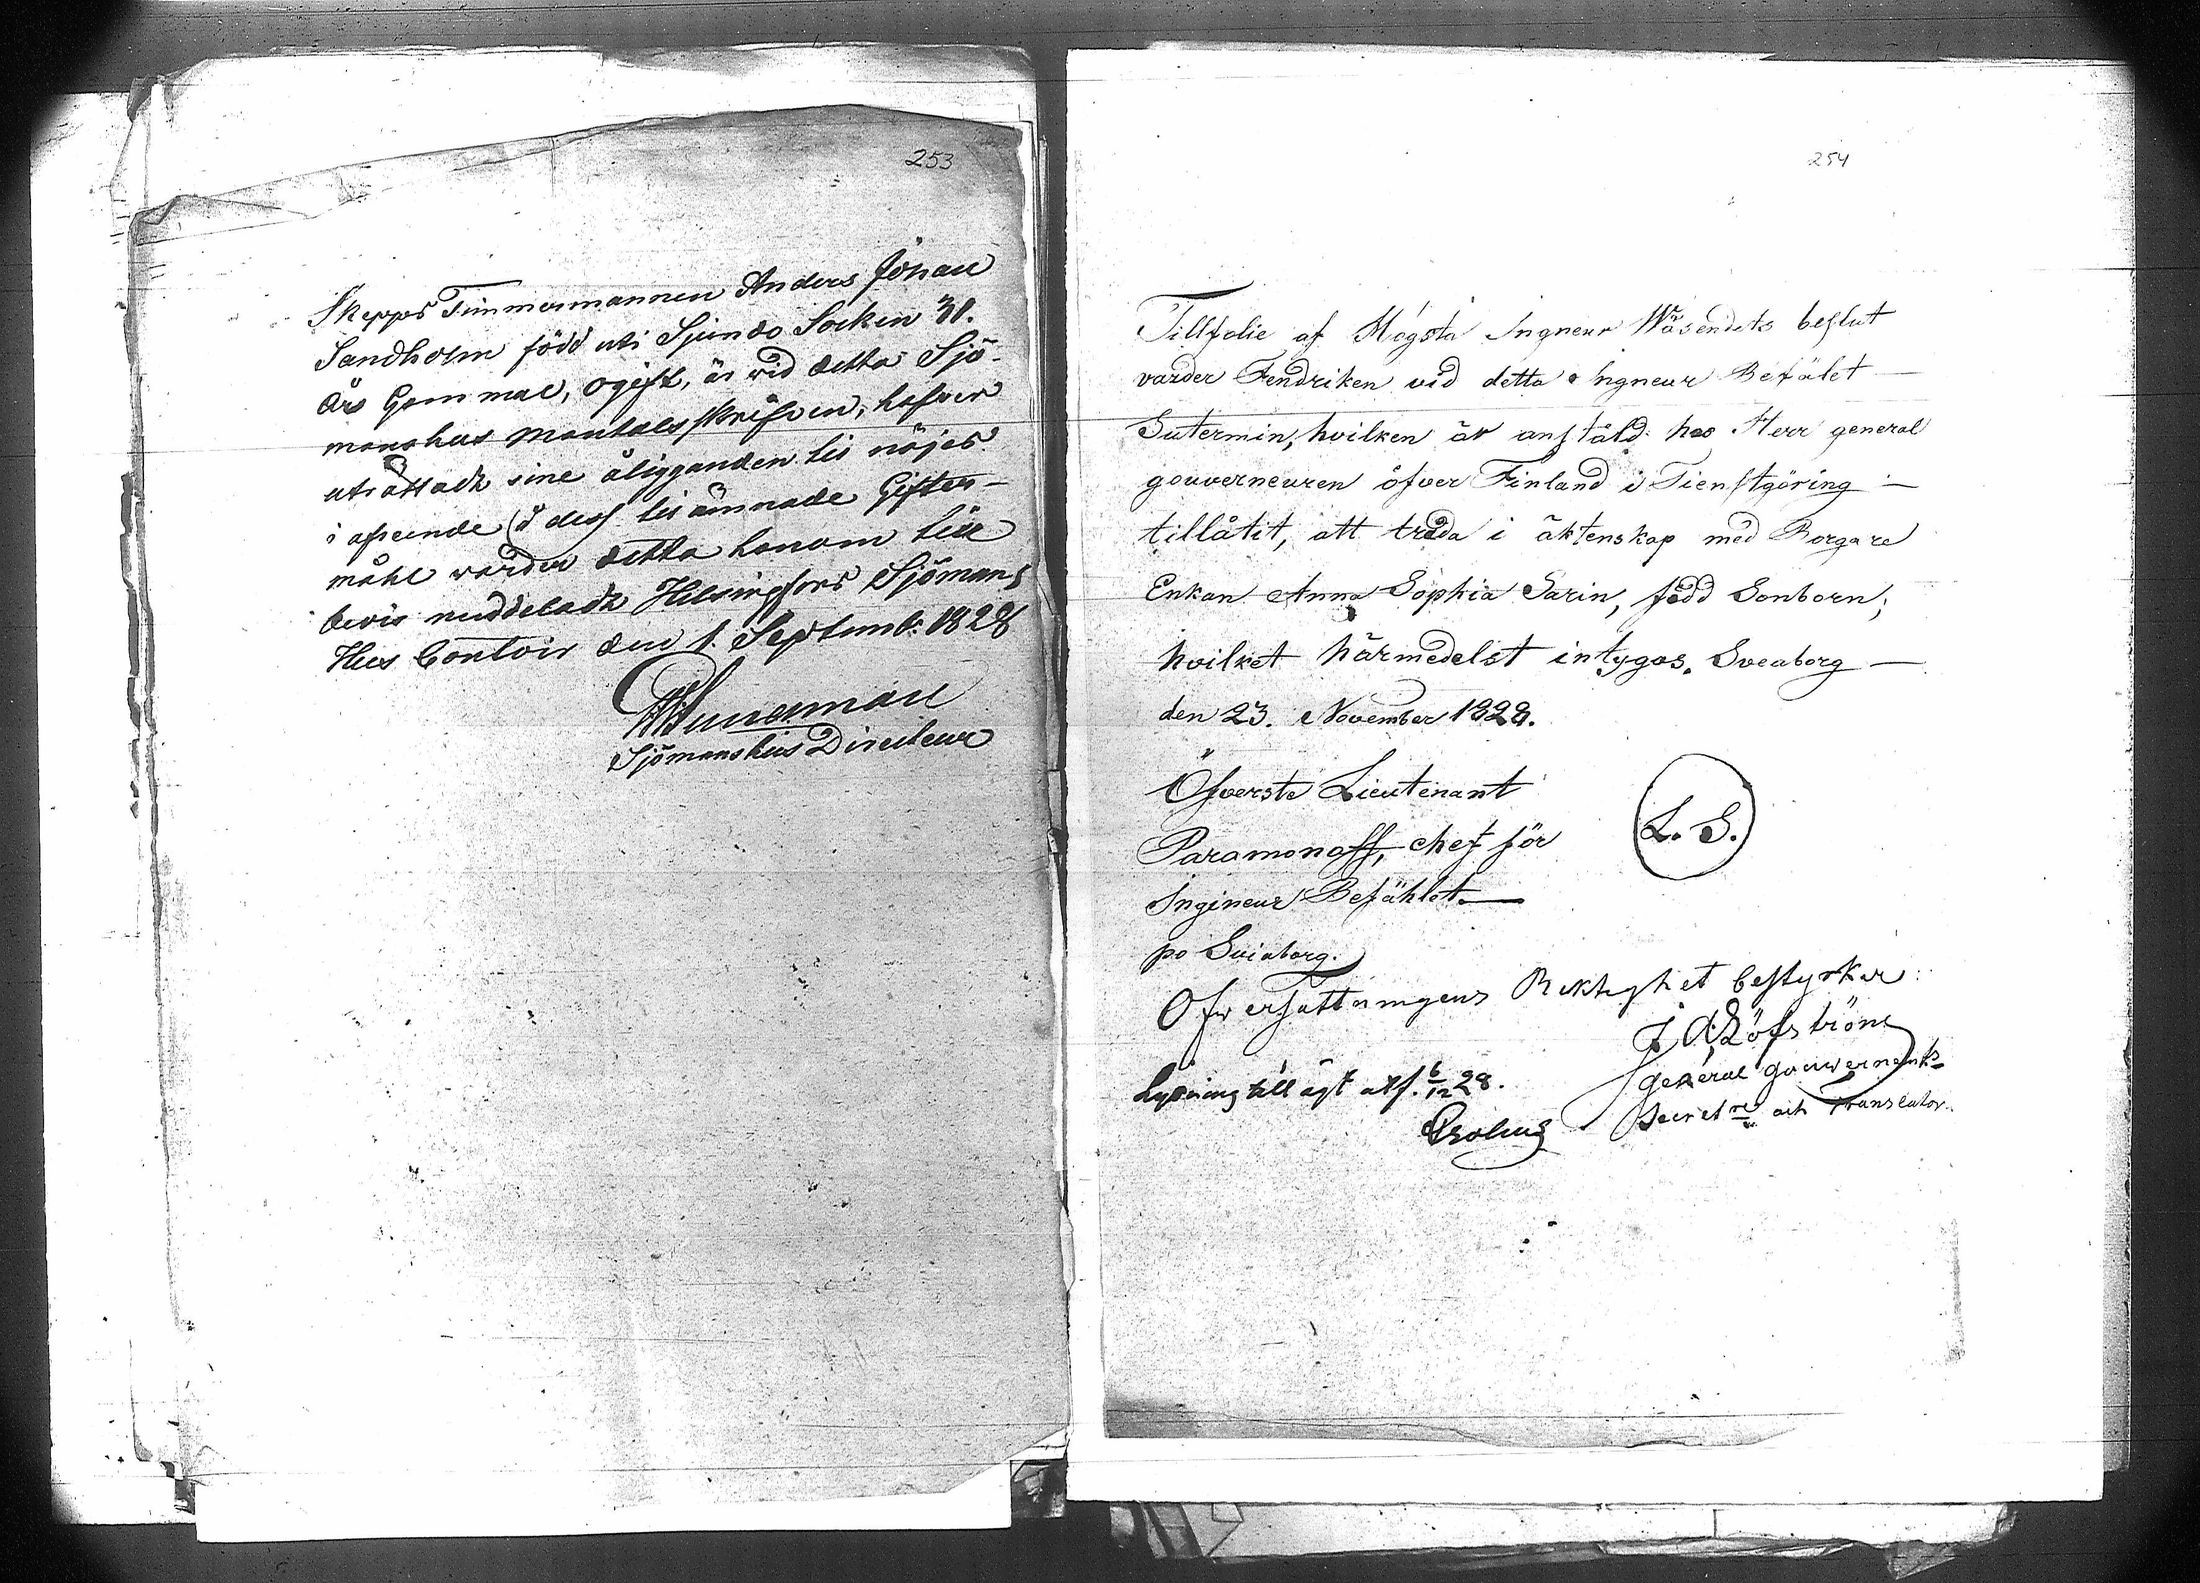 253
Skepps Timmermannen Anders Johan
Sandholm född uti Sjundo Socken 31.
års Gammal, ogift, är wid detta Sjö-
manshus Mantalsskrifven, hafver
uträttadt sine åligganden til nöjes.
i afseende å dess tillämnade Gifter-
måhl warder detta honom till
bevis meddeladt Helsingfors Sjömans
Hus Contoir den 1. Septemb: 1828
Sjömanshus Directeur
254
Tillfolie af Högsta Ingneur Wäsendets beslut
varder Fendriken vid detta Ingneur Befälet —
Sutermin, hvilken är anstäld hos Herr general
gouverneuren öfver Finland i Tienstgöring —
tillåtit, att träda i äktenskap med Borgare
Enkan Anna Sophia Sarin, född Sonborn;
hvilket härmedelst intygas. Sveaborg —
den 23. November 1828.
Öfverste Lieutenant
Paramonoff, chef för
Ingineur Befählet.—
po Sviaborg.
L. S.
Öfversättningens Riktighet bestyrker
J. A. Löfström
general gouvernements-
Secret^re och Translator.
Lysning till ägt. utf. 6/12 28.